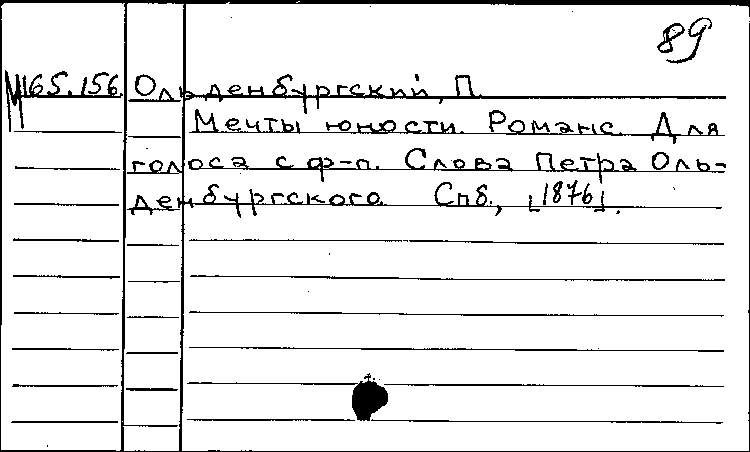 89
М165.156. Ольденбургский, П.
Мечты юности. Романс. Для
голоса с ф-п. Слова Петра Оль-
денбургского. Спб., [1876].